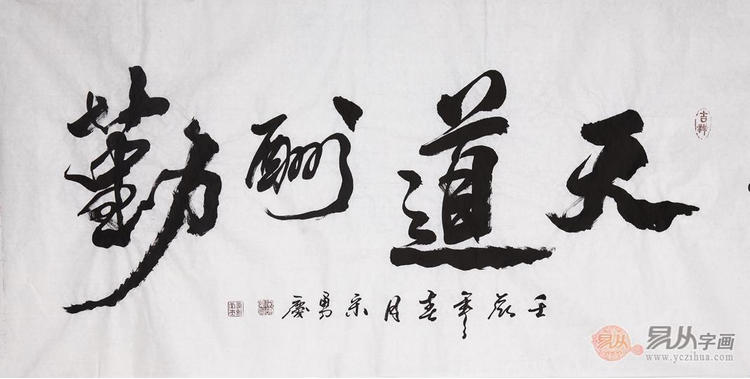 天道酬勤
吉祥
壬辰年春月
易从
易从字画
www.yczihua.com